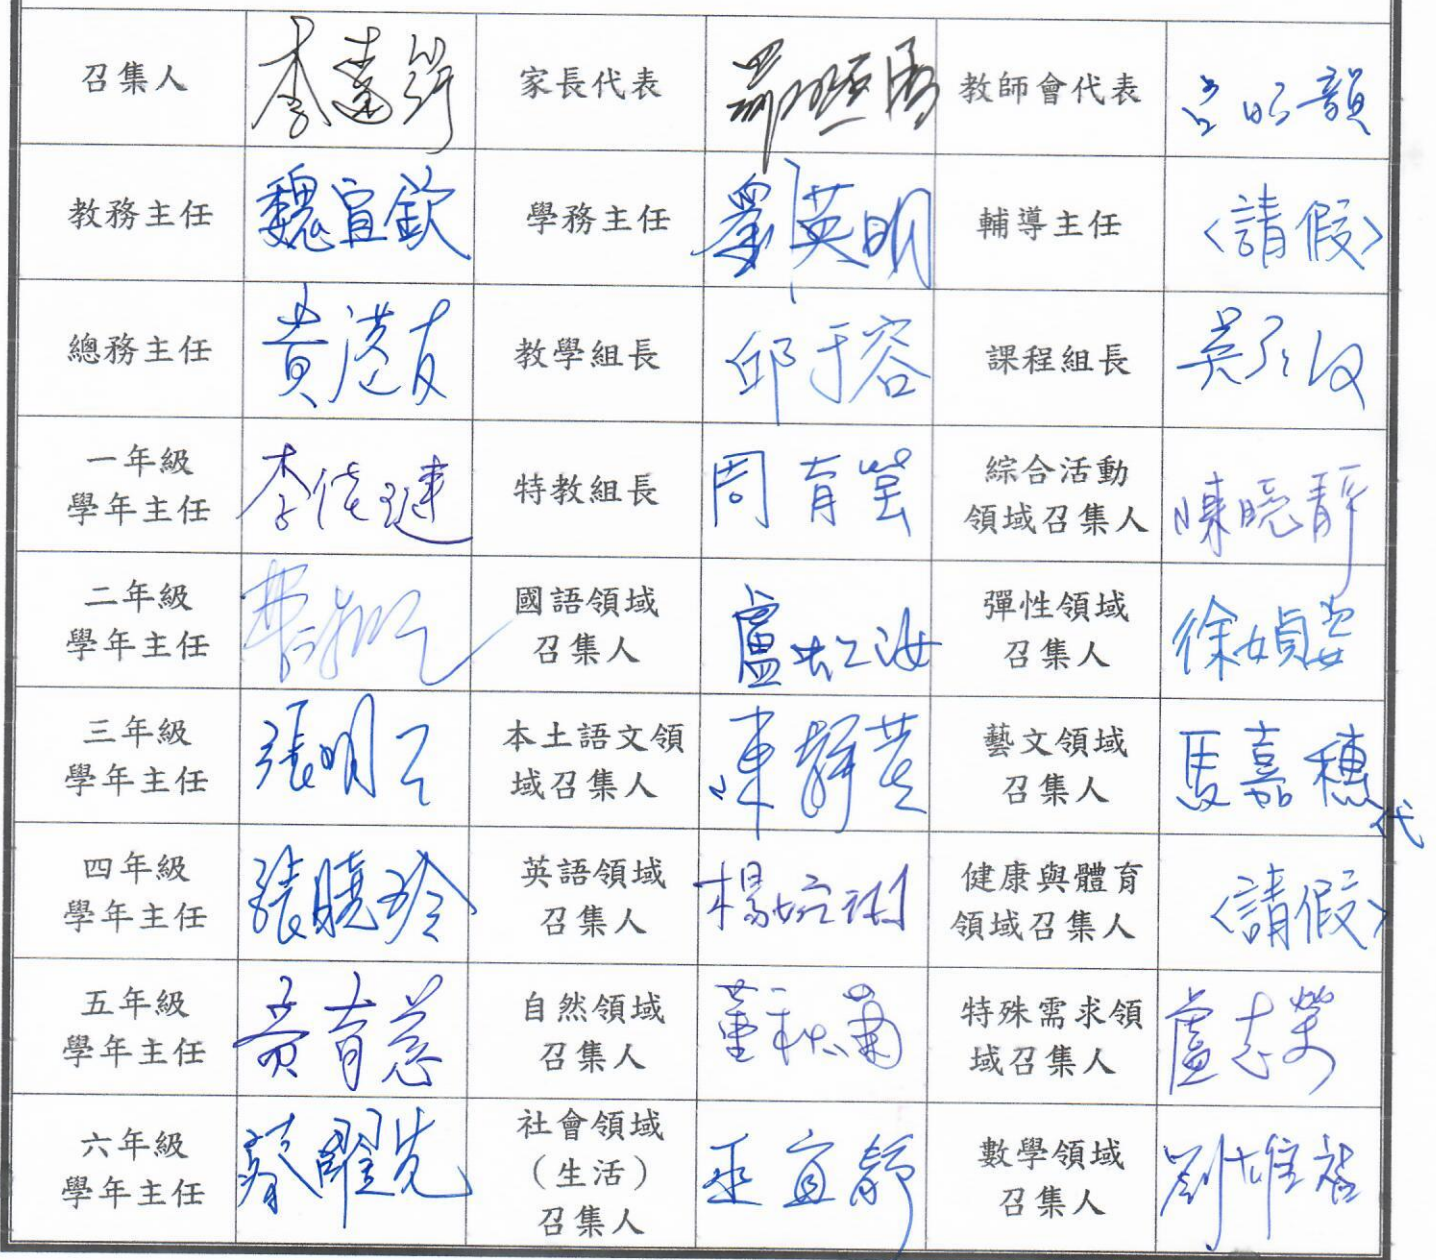 召集人
家長代表
教師會代表
呂昭韻
教務主任
魏宜欽
學務主任
劉英明
輔導主任
〈請假〉
總務主任
教學組長
邱于容
課程組長
一年級
學年主任
特教組長
周育
綜合活動
領域召集人
陳曉靜
二年級
學年主任
國語領域
召集人
盧
彈性領域
召集人
徐媜
三年級
學年主任
張明
本土語文領
域召集人
陳靜
藝文領域
召集人
馬嘉穗
代
四年級
學年主任
張曉玲
英語領域
召集人
楊
健康與體育
領域召集人
〈請假〉
五年級
學年主任
黃育慈
自然領域
召集人
董秋菊
特殊需求領
域召集人
盧志榮
六年級
學年主任
蔡耀先
社會領域
（生活）
召集人
巫宜靜
數學領域
召集人
劉雄